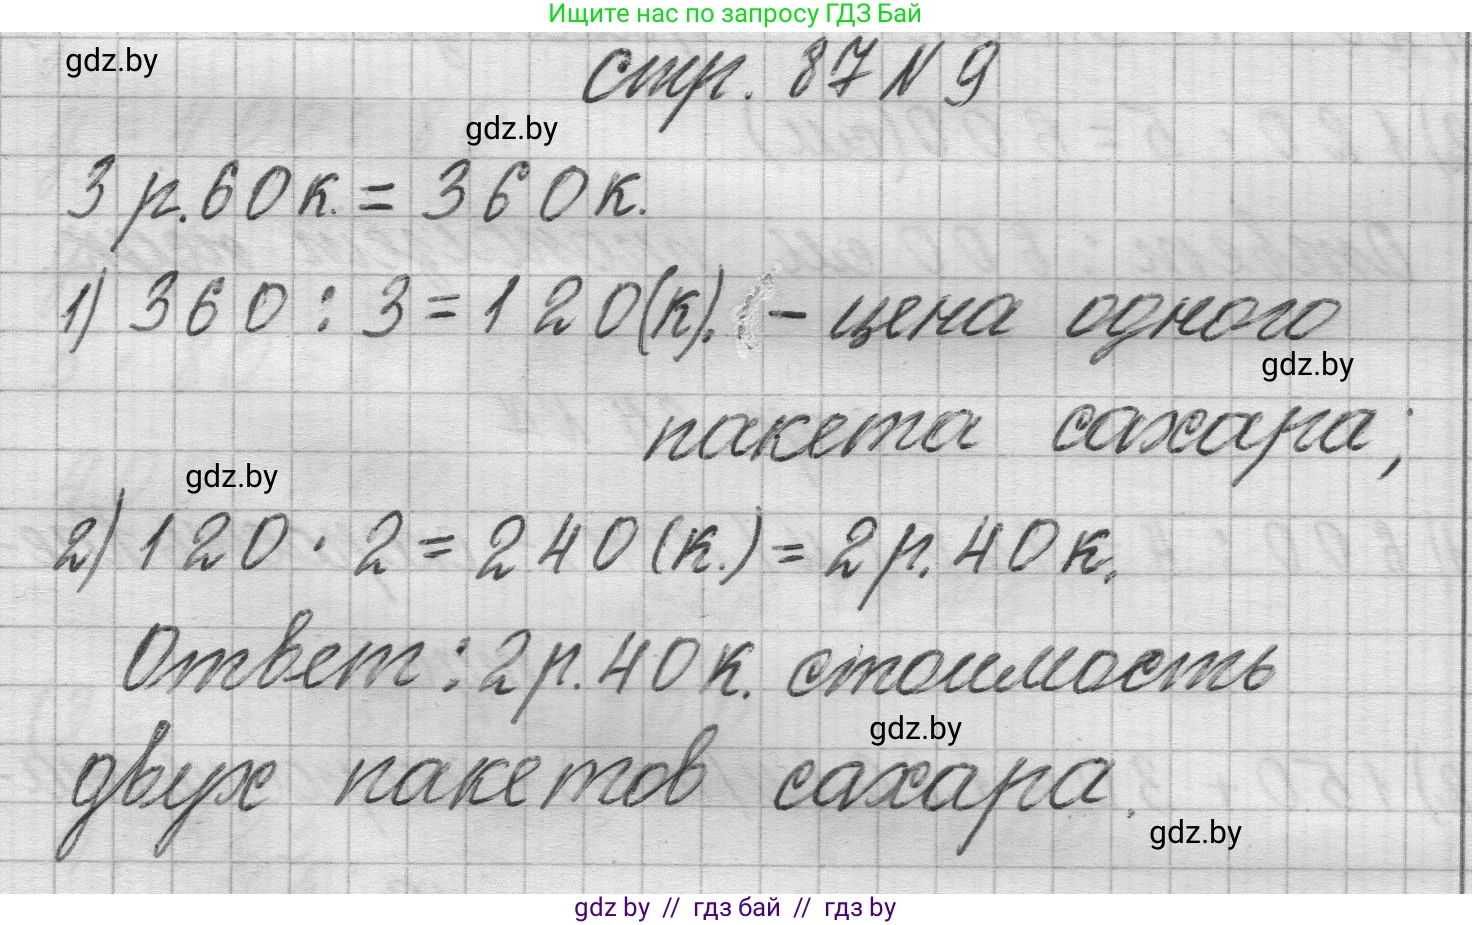 Ищите нас по запросу ГДЗ Бай
gdz.by
стр. 87 № 9
gdz.by
3 р. 60 к. = 360 к.
1) 360 : 3 = 120 (к). – цена одного
gdz.by
пакета сахара;
gdz.by
2) 120 · 2 = 240 (к.) = 2 р. 40 к.
Ответ: 2 р. 40 к. стоимость
gdz.by
двух пакетов сахара.
gdz.by
gdz by // гдз бай // гдз by